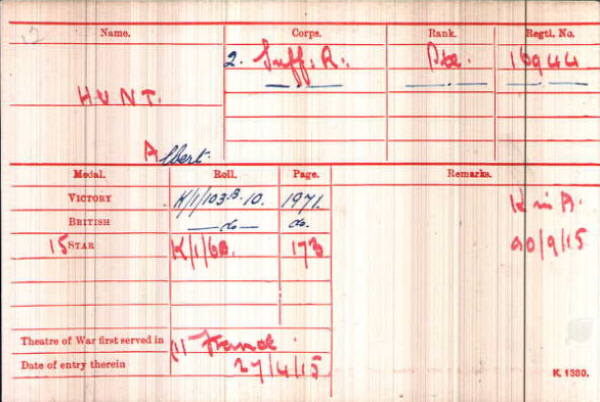 Name. Corps. Rank. Regtl. No.
2. Suff: R. Pte. 16944
HUNT.
Albert.
Medal. Roll. Page. Remarks.
VICTORY K/1/103 B. 10. 1971. K in A.
BRITISH do do.
15 STAR K/1/6B. 173 20/9/15
Theatre of War first served in (1) France.
Date of entry therein 27/4/15
K. 1380.